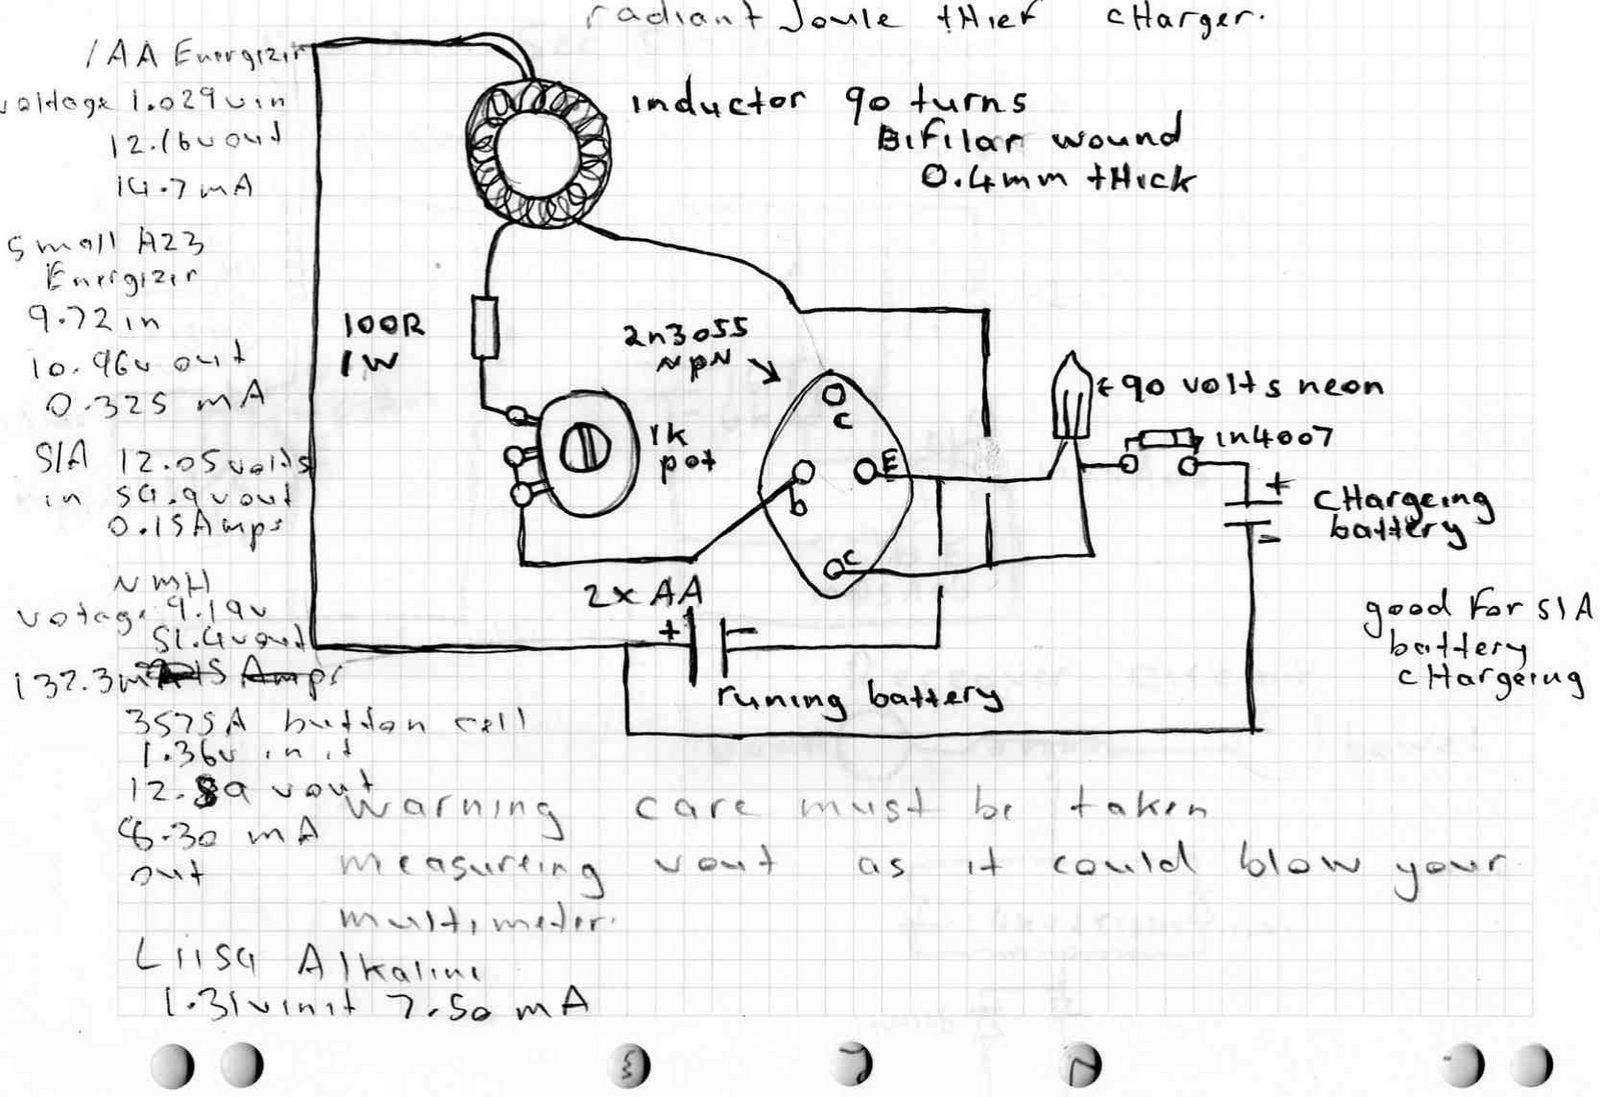 radiant Joule tHief cHarger.
1AA Energizer
voldage 1.029vin
12.16v out
14.7mA
small A23
Energizer
9.72 in
10.96v out
0.325 mA
SlA 12.05 volts
in 59.9vout
0.15Amps
NMH
votage 9.19v
51.4vout
137.3mA
357SA button cell
1.36v in it
12.89 vout
8.30 mA
out
Liisa Alkaline
1.31vinit 7.50 mA
inductor 90 turns
Bifilar wound
0.4mm tHick
100R
1W
1k
pot
2n3055
NPN
c
E
b
c
90 volts neon
1n4007
+
cHargeing
battery
-
2x AA
+ -
runing battery
good for SlA
battery
cHargeing
warning care must be taken
measureing vout as it could blow your
multimeter.